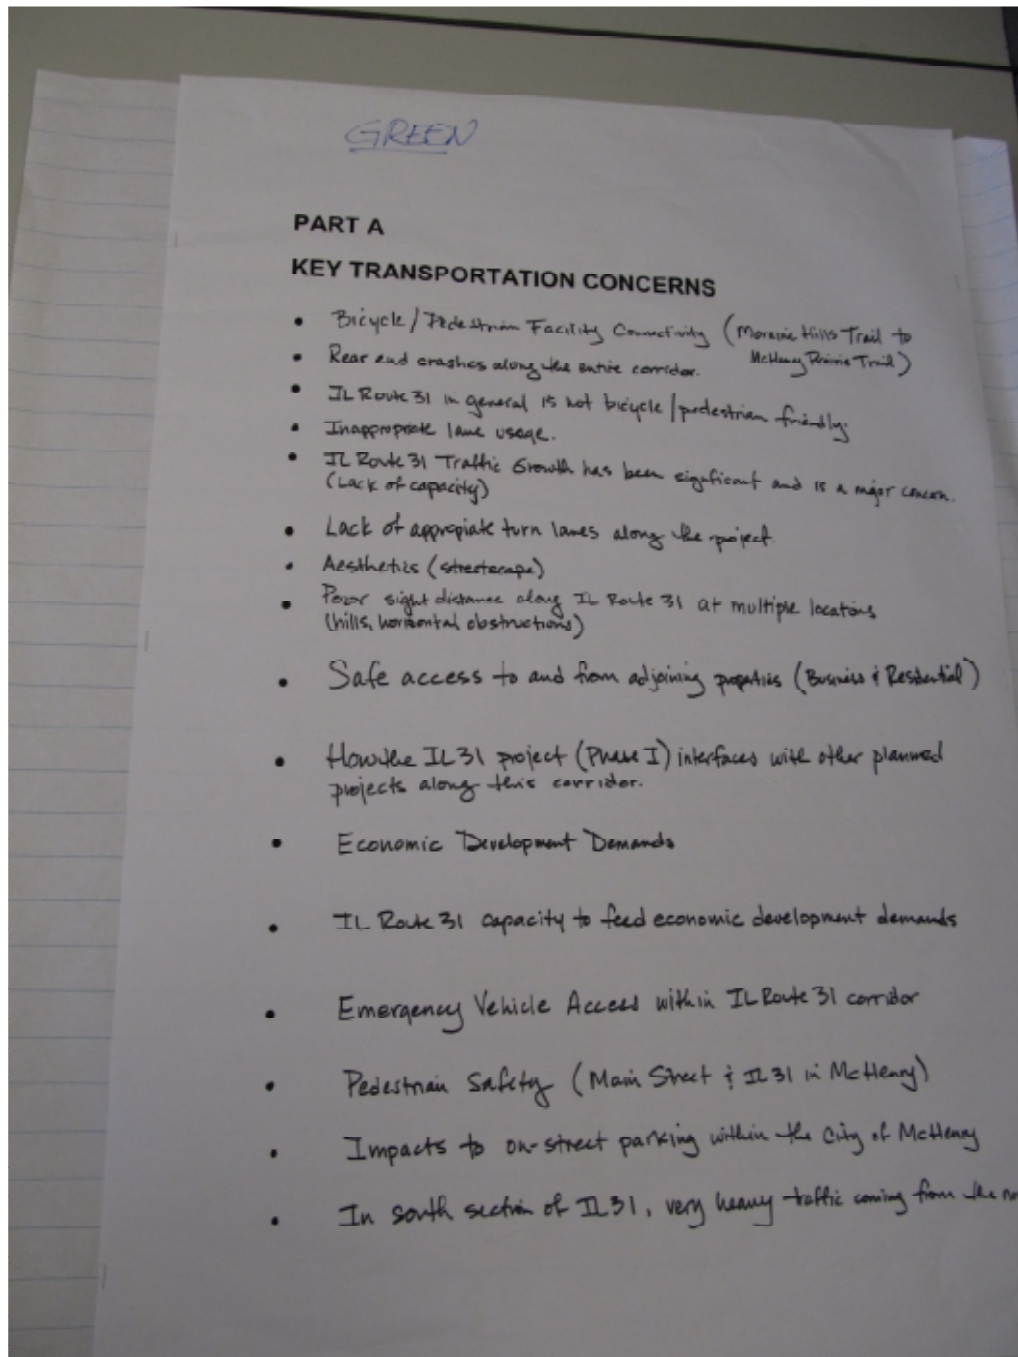 GREEN
PART A
KEY TRANSPORTATION CONCERNS
• Bicycle/Pedestrian Facility Connectivity (Moraine Hills Trail to
McHenry Prairie Trail)
• Rear end crashes along the entire corridor.
• IL Route 31 in general is not bicycle/pedestrian friendly.
• Inappropriate lane usage.
• IL Route 31 Traffic Growth has been significant and is a major concern.
(Lack of capacity)
• Lack of appropiate turn lanes along the project.
• Aesthetics (streetscape)
• Poor sight distance along IL Route 31 at multiple locations
(hills, horizontal obstructions)
• Safe access to and from adjoining properties (Business & Residential)
• How the IL 31 project (Phase I) interfaces with other planned
projects along this corridor.
• Economic Development Demands
• IL Route 31 capacity to feed economic development demands
• Emergency Vehicle Access within IL Route 31 corridor
• Pedestrian Safety (Main Street & IL 31 in McHenry)
• Impacts to on-street parking within the City of McHenry
• In south section of IL 31, very heavy traffic coming from the